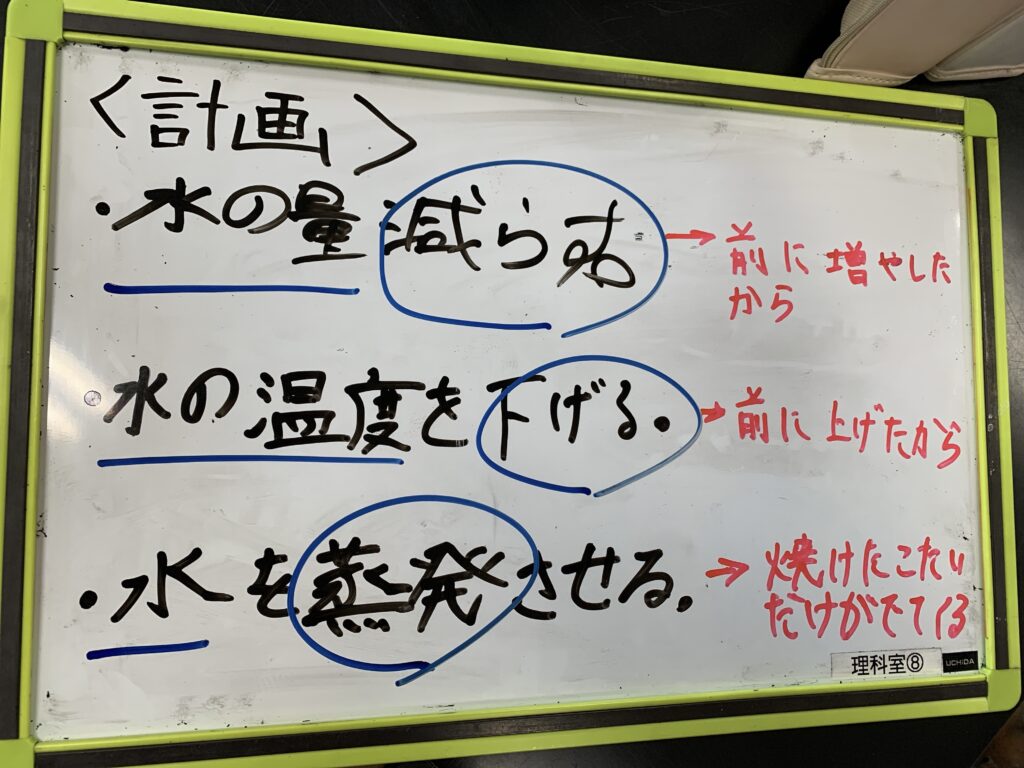 〈計画〉
・水の量減らす
→前に増やした
から
・水の温度を下げる。
→前に上げたから
・水を蒸発させる。
→焼けたこたい
だけがでてくる
理科室⑧
UCHIDA